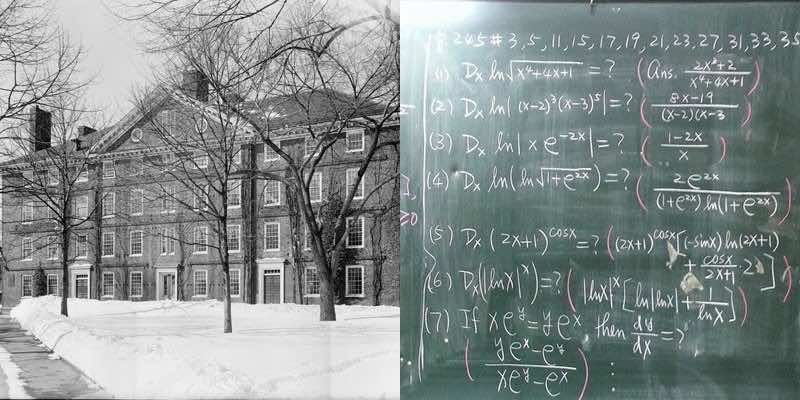 P.245 # 3, 5, 11, 15, 17, 19, 21, 23, 27, 31, 33, 35
(1) Dx ln√(x⁴+4x+1) = ? (Ans. (2x³+2)/(x⁴+4x+1))
(2) Dx ln|(x-2)³(x-3)⁵| = ? ((8x-19)/((x-2)(x-3))
(3) Dx ln|x e^(-2x)| = ? ((1-2x)/x)
(4) Dx ln(ln√(1+e^(2x))) = ? (2e^(2x)/((1+e^(2x)) ln(1+e^(2x))))
(5) Dx (2x+1)^(cosx) = ? ((2x+1)^(cosx) [(-sinx) ln(2x+1)
+ cosx/(2x+1) · 2])
(6) Dx(|lnx|^x) = ? (|lnx|^x [ln|lnx| + 1/lnx])
(7) If xe^y = ye^x then dy/dx = ?
((ye^x - e^y)/(xe^y - e^x))